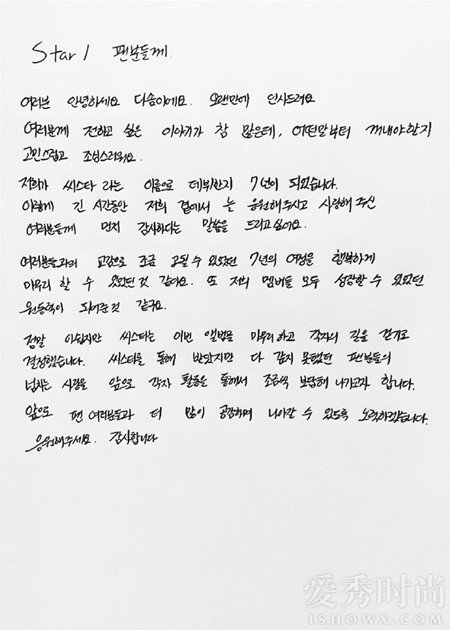 Star1 팬분들께.
여러분 안녕하세요 다솜이에요. 오랜만에 인사드려요
여러분께 전하고 싶은 이야기가 참 많은데, 어떤말부터 꺼내야할지
고민스럽고 조심스러워요.
저희가 씨스타 라는 이름으로 데뷔한지 7년이 되었습니다.
이렇게 긴 시간동안 저희 곁에서 늘 응원해주시고 사랑해 주신
여러분들께 먼저 감사하다는 말씀을 드리고싶어요.
여러분들과의 교감으로 조금 공될 수 있었던 7년의 여정을 행복하게
마무리 할 수 있었던 것 같아요. 또 저희 멤버들 모두 성장할 수 있었던
원동력이 되어준 것 같구요.
정말 아쉽지만 씨스타는 이번 앨범을 마무리하고 각자의 길을 걷기로
결정했습니다. 씨스타를 통해 받았지만 다 갚지 못했던 팬분들의
넘치는 사랑을 앞으로 각자 활동을 통해서 조금씩 보답해 나가고자 합니다.
앞으로 팬 여러분들과 더 많이 공감하며 나아갈 수 있도록 노력하겠습니다.
응원해주세요. 감사합니다
爱秀时尚
ISHOWX.COM